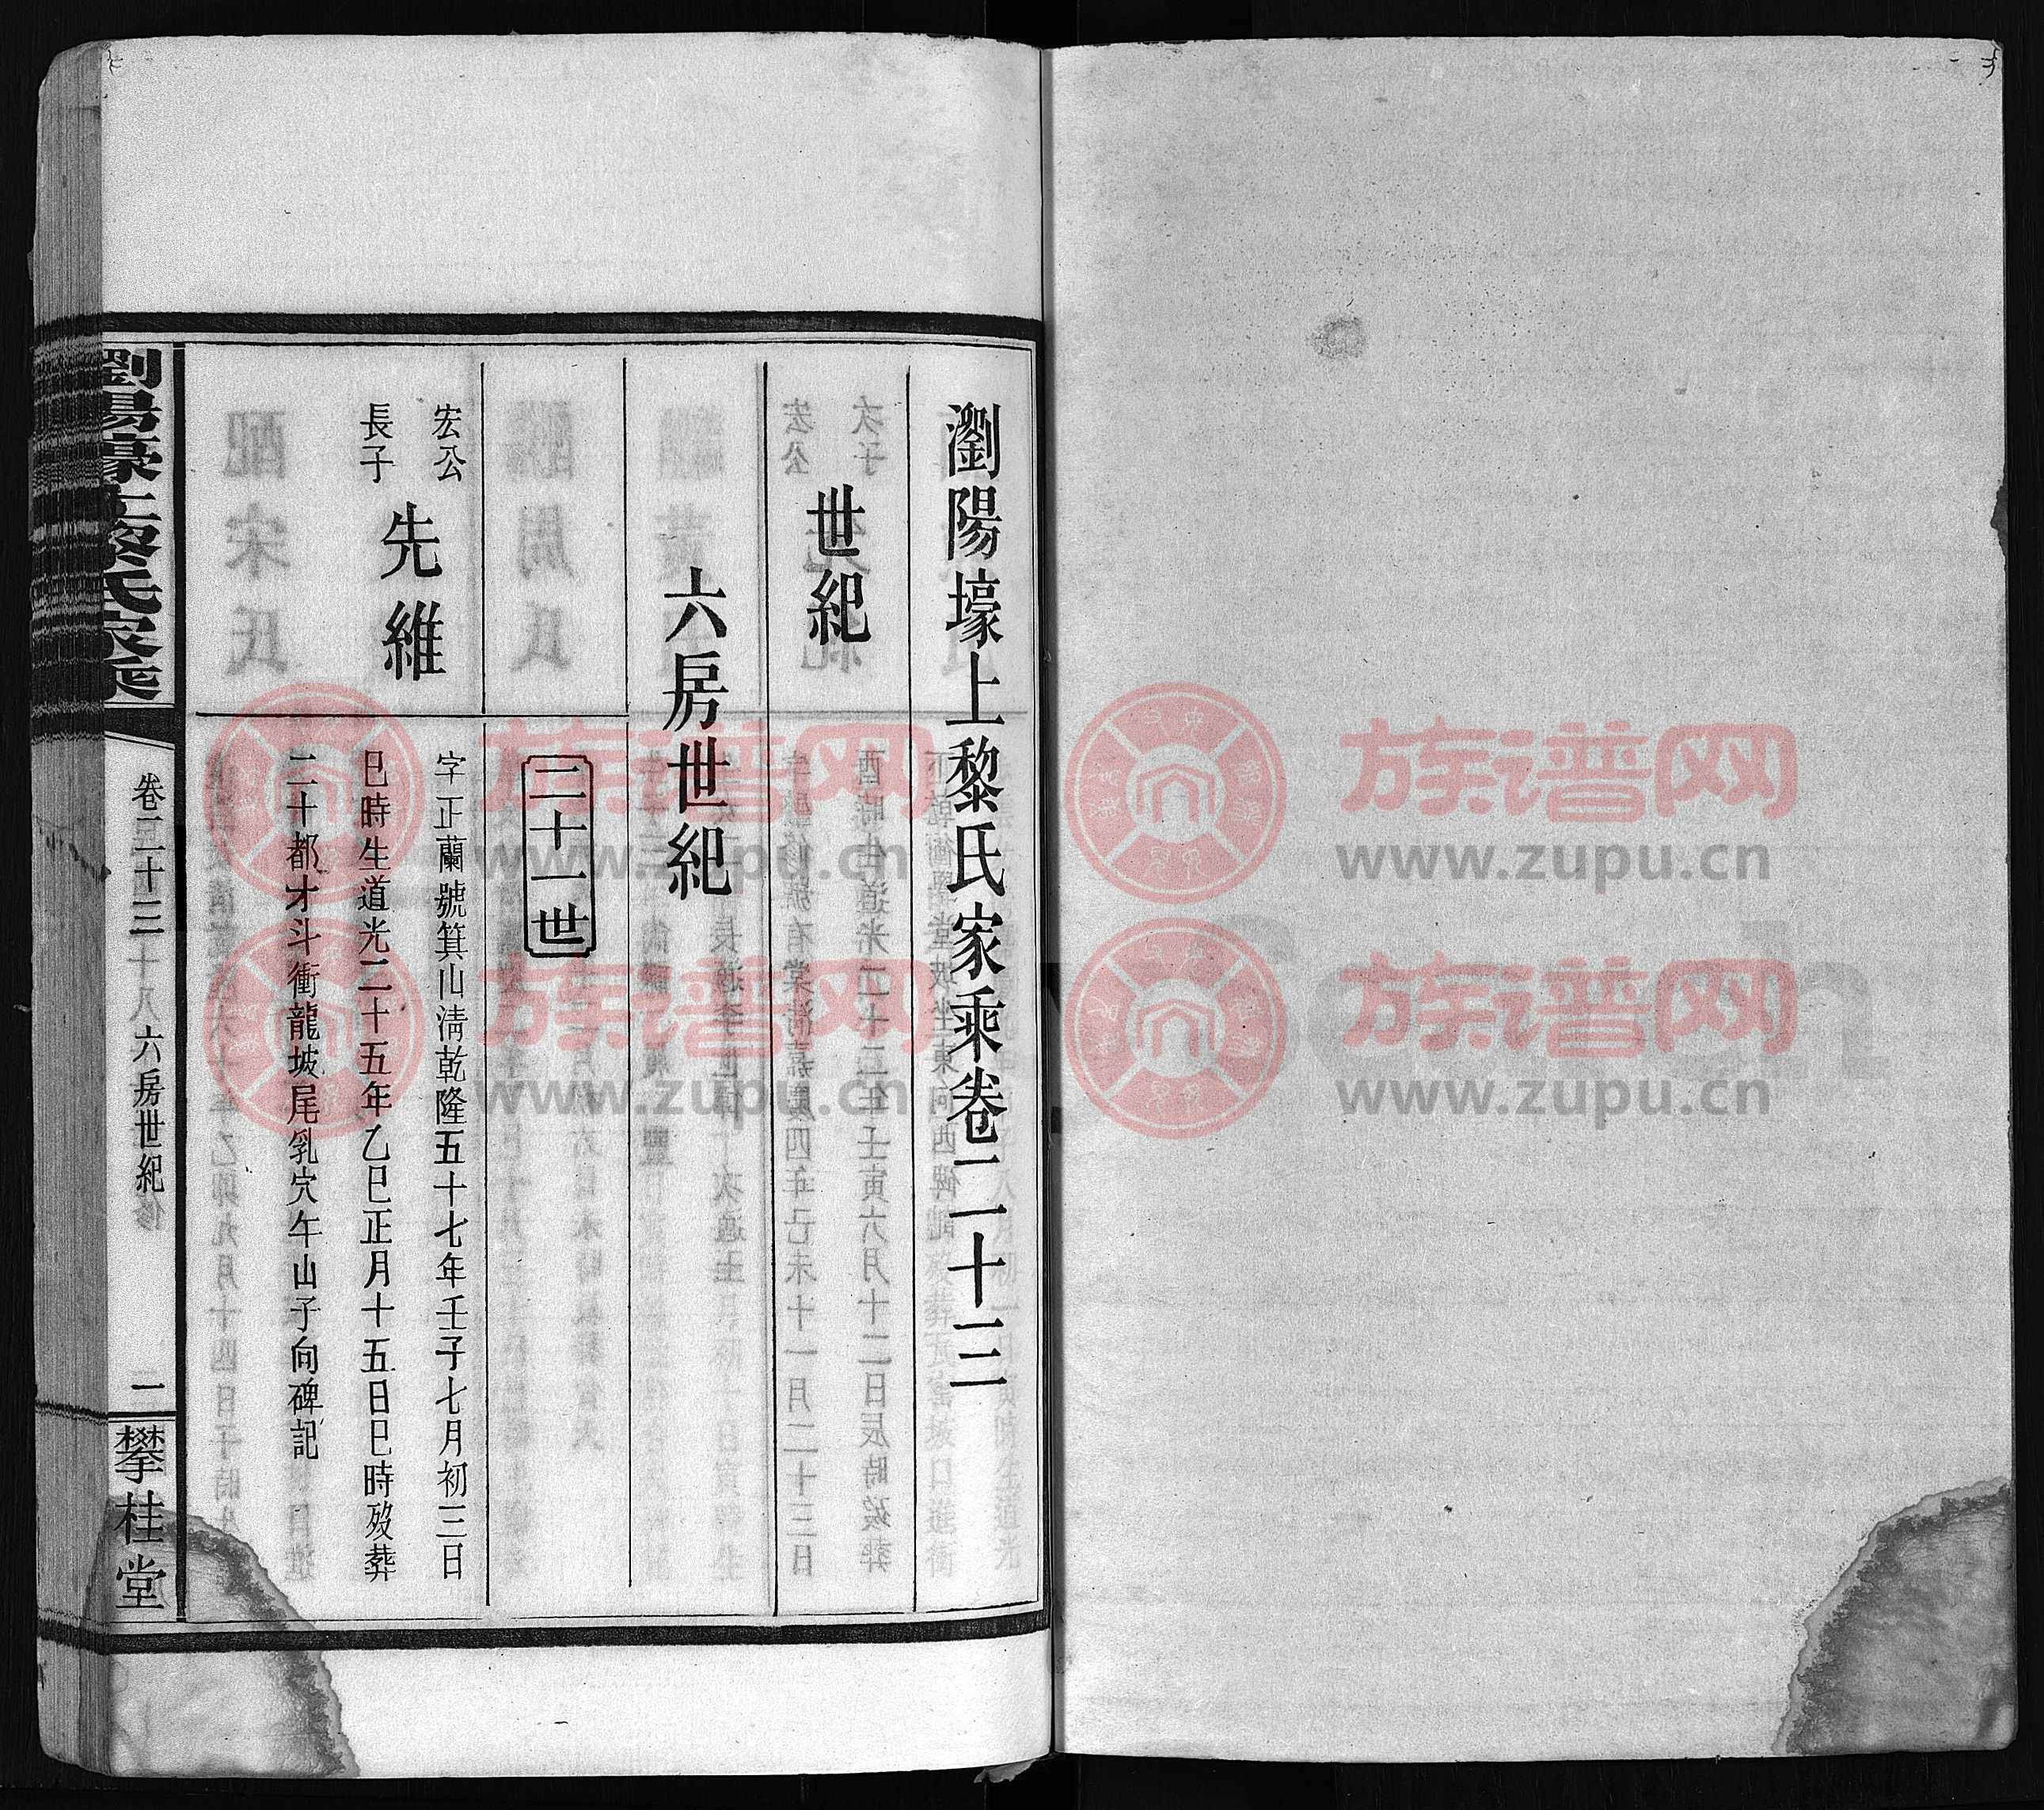 瀏陽壕上黎氏家乘卷二十三
世紀
六房世紀
二十一世
宏公
長子
先維
字正蘭號箕山清乾隆五十七年壬子七月初三日
巳時生道光二十五年乙巳正月十五日巳時歿葬
二十都才斗衝龍坡尾乳穴午山子向碑記
瀏陽壕上黎氏家乘
卷二十三
六房世紀
一
攀桂堂
族谱网
www.zupu.cn
族谱网
www.zupu.cn
族谱网
www.zupu.cn
族谱网
www.zupu.cn